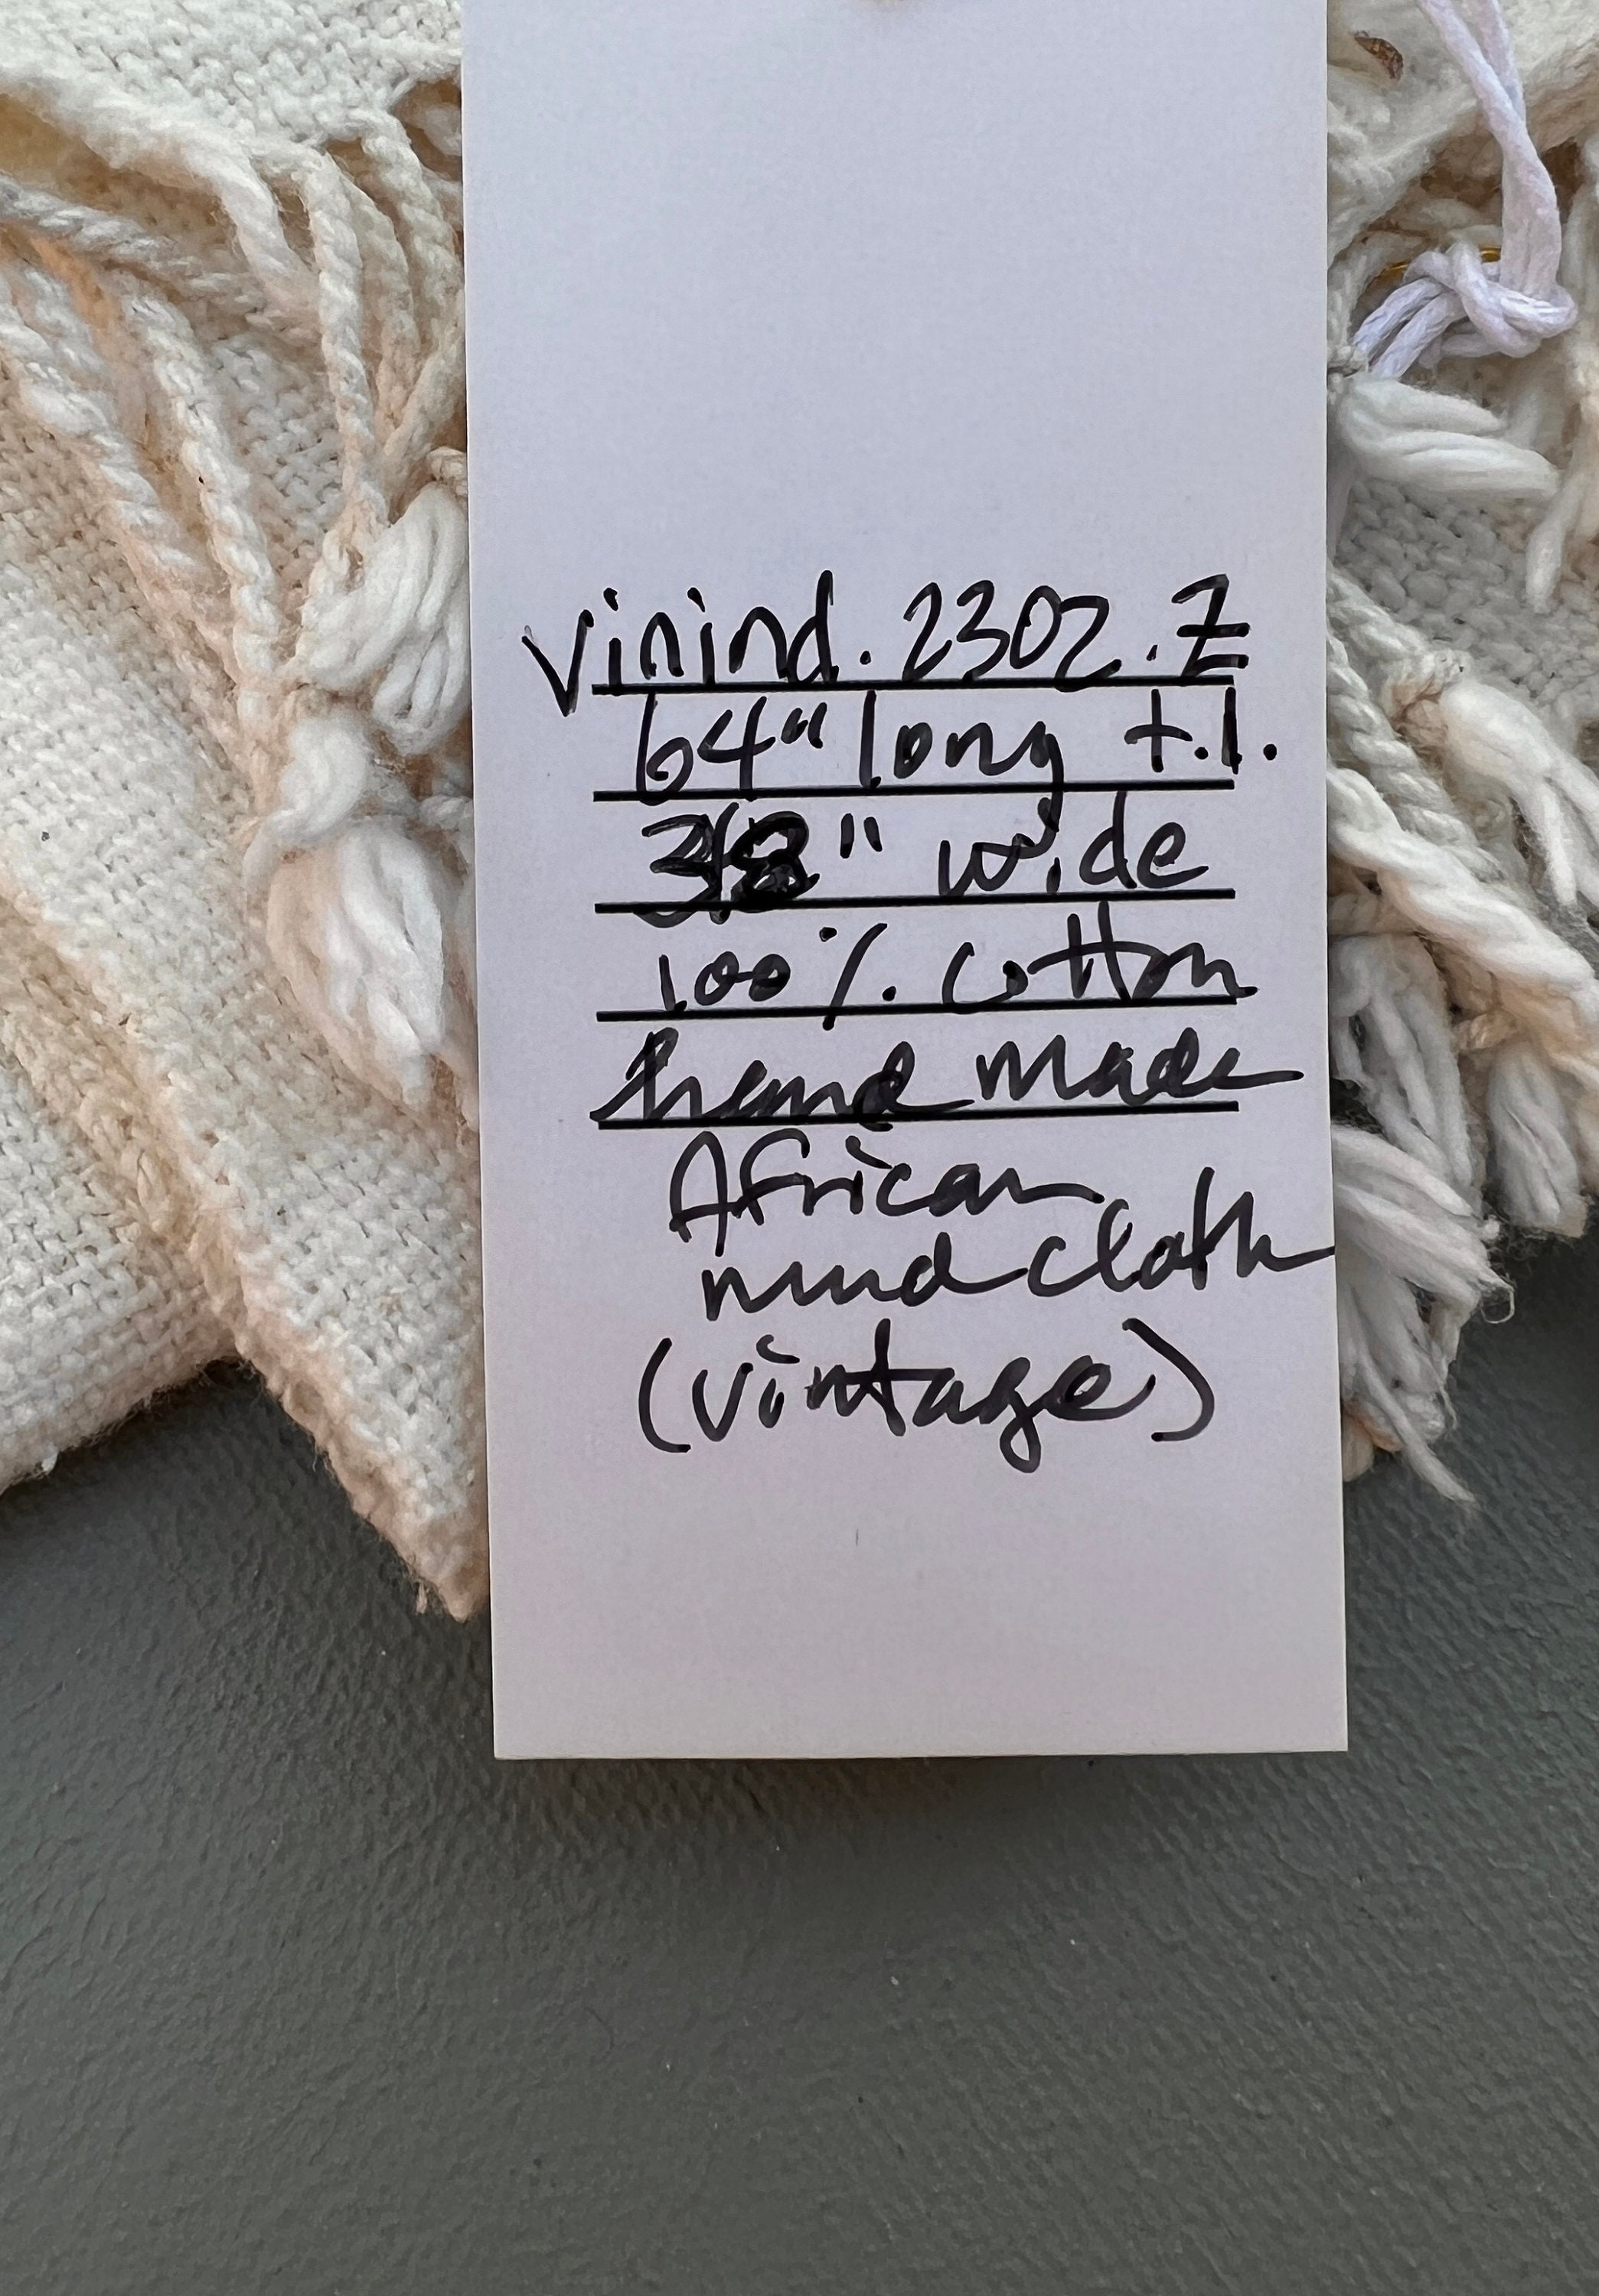 vinind. 2302. Z
64" long t.l.
38" wide
100% cotton
hand made
African
mud cloth
(vintage)